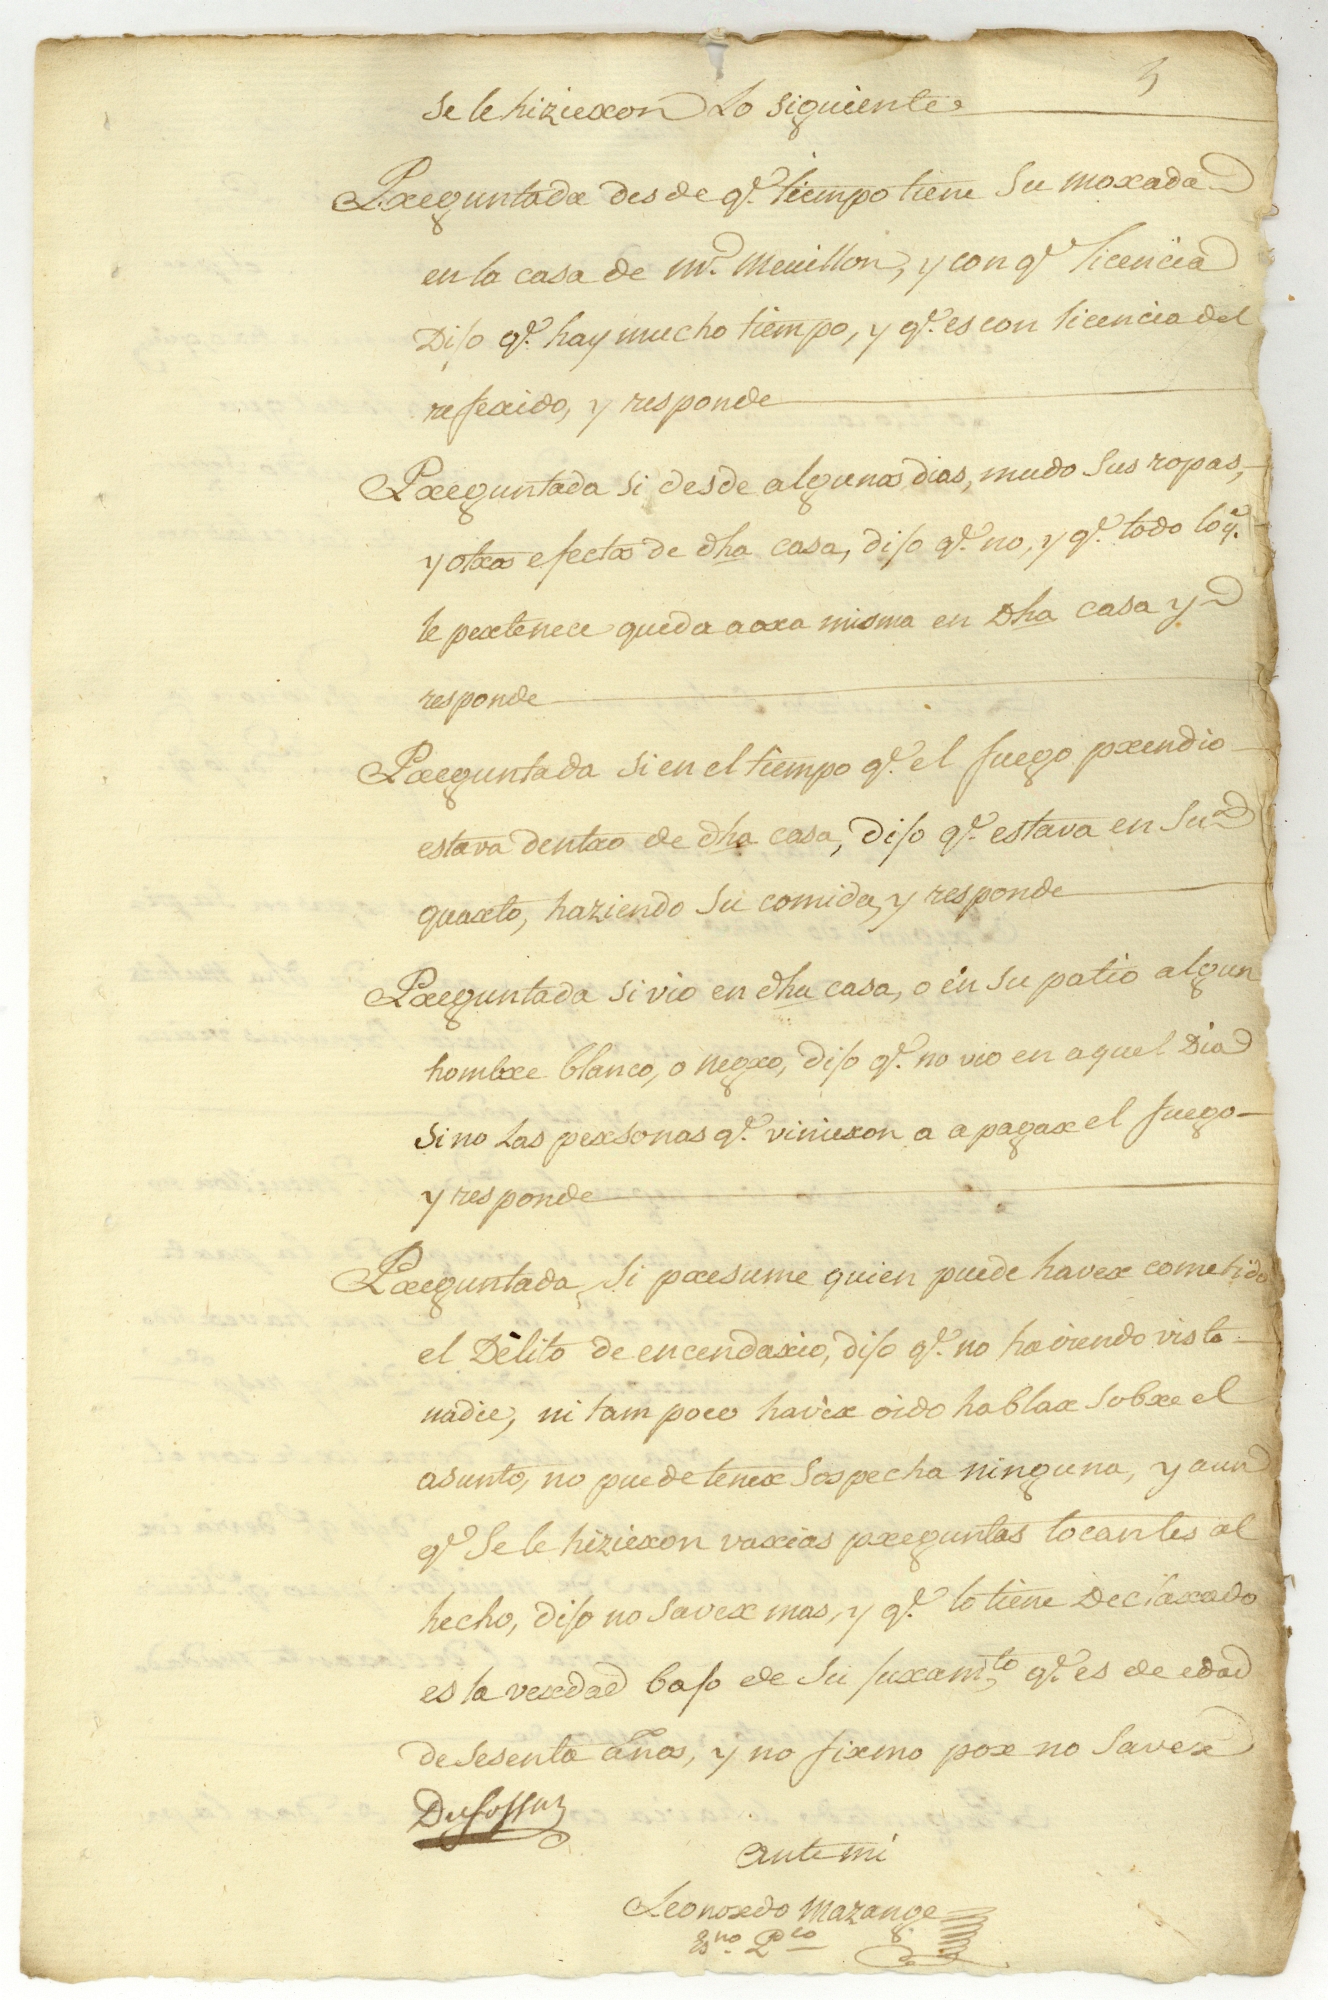 3
Se le hizieron Lo siguiente
Preguntada desde q.e tiempo tiene su morada
en la casa de Mr. Meuillon, y con q.e licencia
Dijo q.e hay mucho tiempo, y q.e es con licencia del
referido, y responde
Preguntada si desde algunos dias, mudo sus ropas,
y otros efectos de dha casa, dijo q.e no, y q.e todo lo q.e
le pertenece queda aora misma en Dha casa y
responde
Preguntada si en el tiempo q.e el fuego prendio
estava dentro de dha casa, dijo q.e estava en su
quarto, haziendo su comida, y responde
Preguntada si vio en dha casa, o en su patio algun
hombre blanco, o negro, dijo q.e no vio en aquel Dia
sino las personas q.e vinieron a apagar el fuego
y responde
Preguntada, si presume quien puede haver cometido
el Delito de encendario, dijo q.e no haviendo visto
nadie, ni tampoco haver oido hablar sobre el
asunto, no puede tener sospecha ninguna, y aun
q.e se le hizieron varias preguntas tocantes al
hecho, dijo no saver mas, y q.e lo tiene Declarado
es la verdad bajo de su juram.to q.e es de edad
de sesenta años, y no firmo por no saver
Dufossat
Ante mi
Leonardo Mazange
Es.no P.co